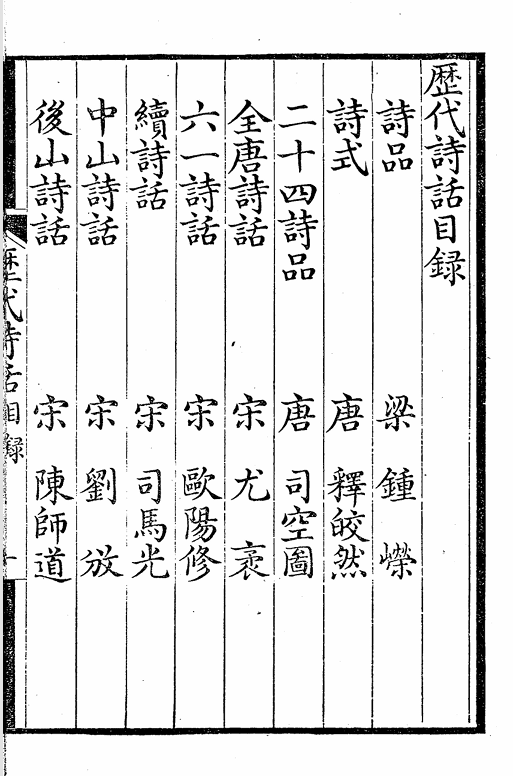 歷代詩話目録
詩品 梁 鍾嶸
詩式 唐 釋皎然
二十四詩品 唐 司空圖
全唐詩話 宋 尤袤
六一詩話 宋 歐陽修
續詩話 宋 司馬光
中山詩話 宋 劉攽
後山詩話 宋 陳師道
歷代詩話目録 一